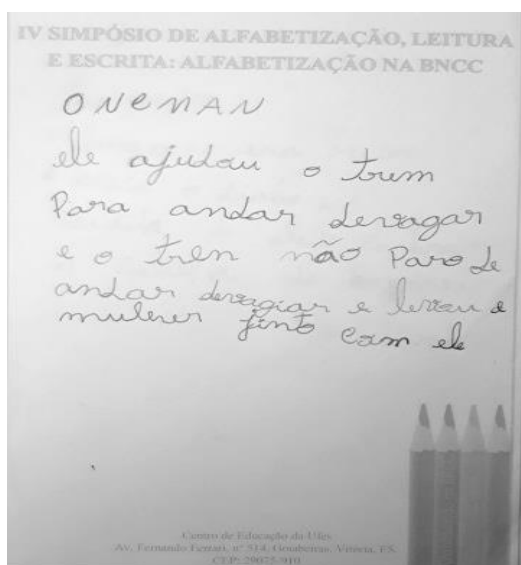 IV SIMPÓSIO DE ALFABETIZAÇÃO, LEITURA
E ESCRITA: ALFABETIZAÇÃO NA BNCC
O NEMAN
ele ajudau o trum
Para andar devagar
e o tren não Paro de
andar devagiar e levau a
mulher jinto com ele
Centro de Educação da Ufes
Av. Fernando Ferrari, nº 514, Goiabeiras, Vitória, ES.
CEP: 29075-910